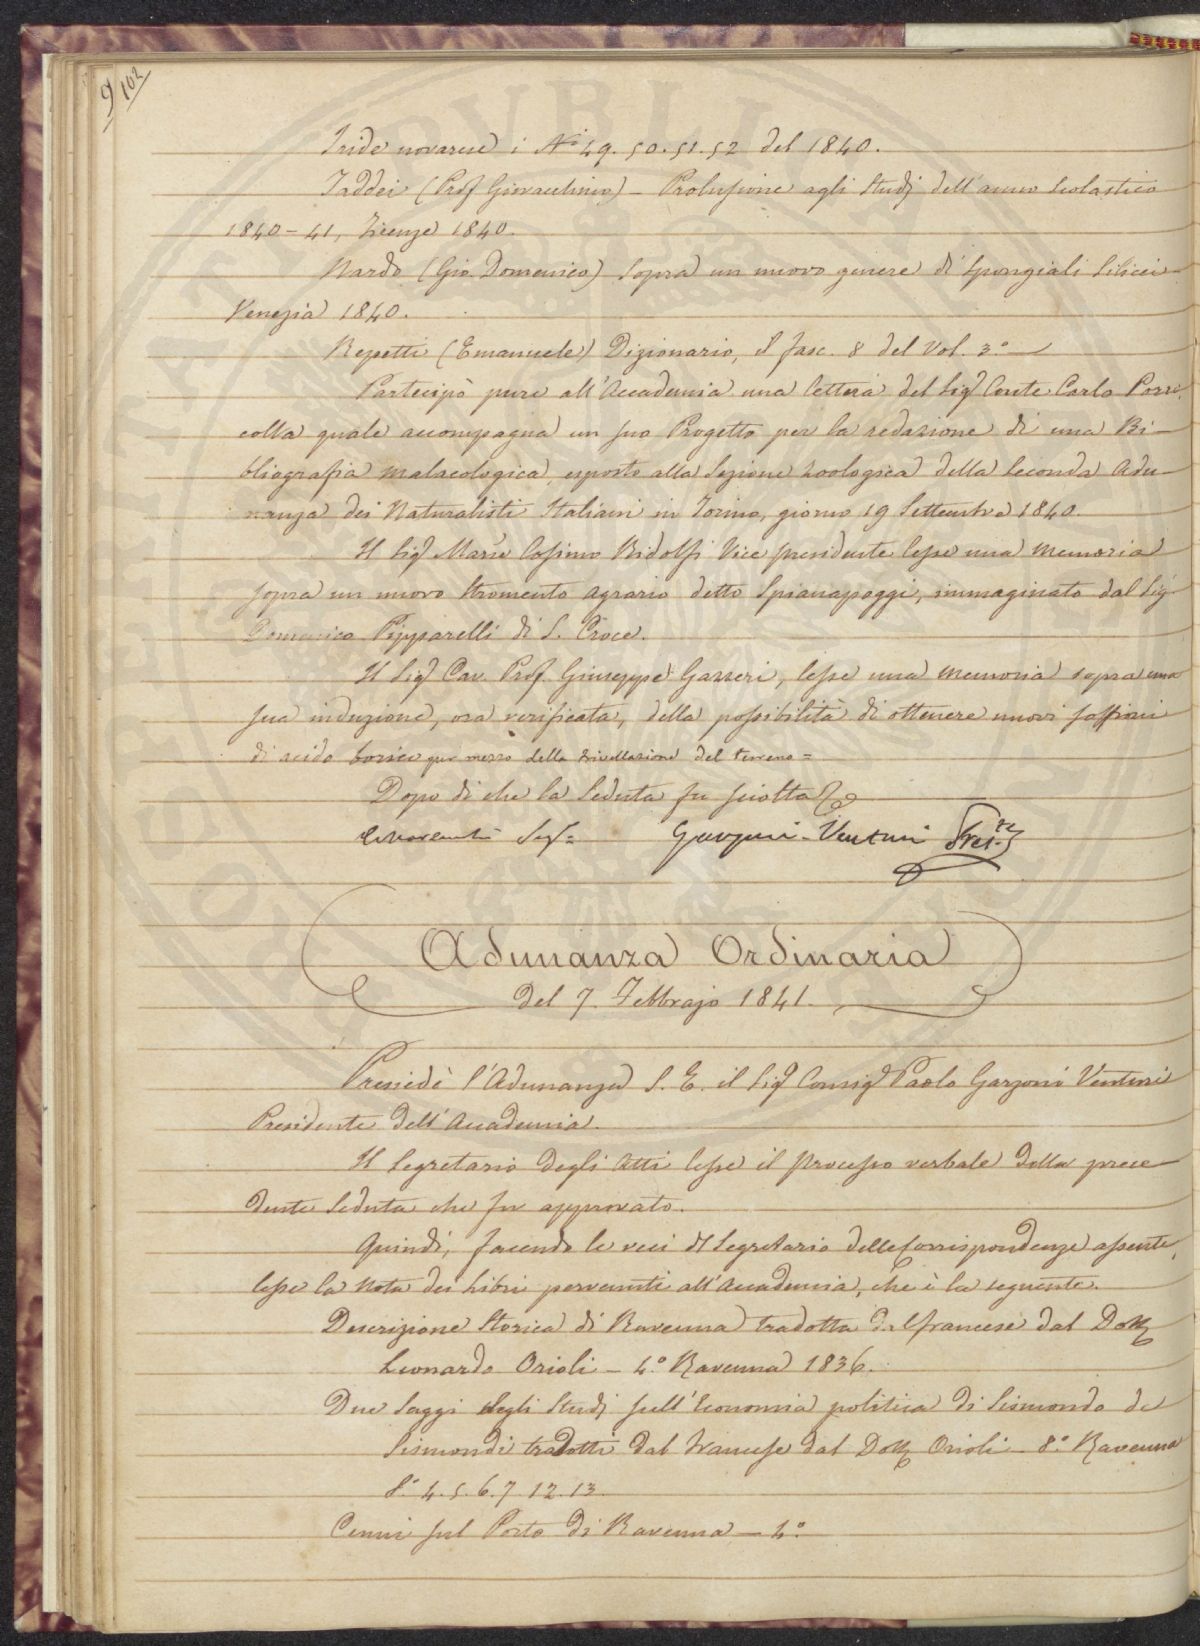 9
102
Iride novarese i Nⁱ 49. 50. 51. 52 del 1840.
Taddei (Prof Giovacchino) – Prolusione agli Studj dell'anno scolastico
1840–41, Firenze 1840.
Nardo (Gio. Domenico) Sopra un nuovo genere di Spongiali Silicei
Venezia 1840.
Repetti (Emanuele) Dizionario, il fasc. 8 del Vol. 3.º –
Partecipò pure all'Accademia una lettera del Sigʳ Conte Carlo Porro
colla quale accompagna un suo Progetto per la redazione di una Bi–
bliografia Malacologica, esposto alla Sezione Zoologica della Seconda Adu–
nanza dei Naturalisti Italiani in Torino, giorno 19 Settembre 1840.
Il Sigʳ March Cosimo Ridolfi Vice presidente lesse una Memoria
sopra un nuovo Stromento Agrario detto Spianapoggi, immaginato dal Sigʳ
Domenico Pipparelli di S. Croce.
Il Sigʳ Cav. Prof. Giuseppe Gazzeri, lesse una Memoria sopra una
sua induzione, ora verificata, della possibilità di ottenere nuovi soffioni
di acido borico per mezzo della trivellazione del terreno =
Dopo di che la Seduta fu sciolta
Segº Garzoni-Venturi Presᵗᵉ
Adunanza Ordinaria
Del 7. Febbrajo 1841.
Presiedè l'Adunanza S. E. il Sigʳ Consigʳ Paolo Garzoni Venturi
Presidente dell'Accademia.
Il Segretario degli Atti lesse il Processo verbale della prece–
dente Seduta che fu approvato.
Quindi, facendo le veci del Segretario delle Corrispondenze assente,
lesse la Nota dei Libri pervenuti all'Accademia, che è la seguente.
Descrizione Storica di Ravenna tradotta dal francese dal Dott
Leonardo Orioli – 4.º Ravenna 1836.
Due Saggi degli Studj sull'Economia politica di Sismondo de
Sismondi tradotti dal francese dal Dott Orioli – 8.º Ravenna
8.º 4. 5. 6. 7. 12. 13.
Cenni sul Porto di Ravenna – 4.º